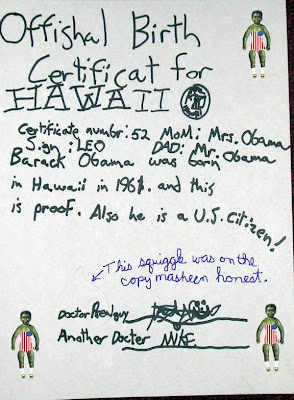 Offishal Birth
Certificat for
HAWAII
certificate numbr: 52 MoM: Mrs. Obama
Sign: LEO DAD: Mr. Obama
Barack Obama was born
in Hawaii in 1961. and this
is proof. Also he is a U.S. Citizen!
This squiggle was on the
copy masheen honest.
Doctor
Another Docter MIKE